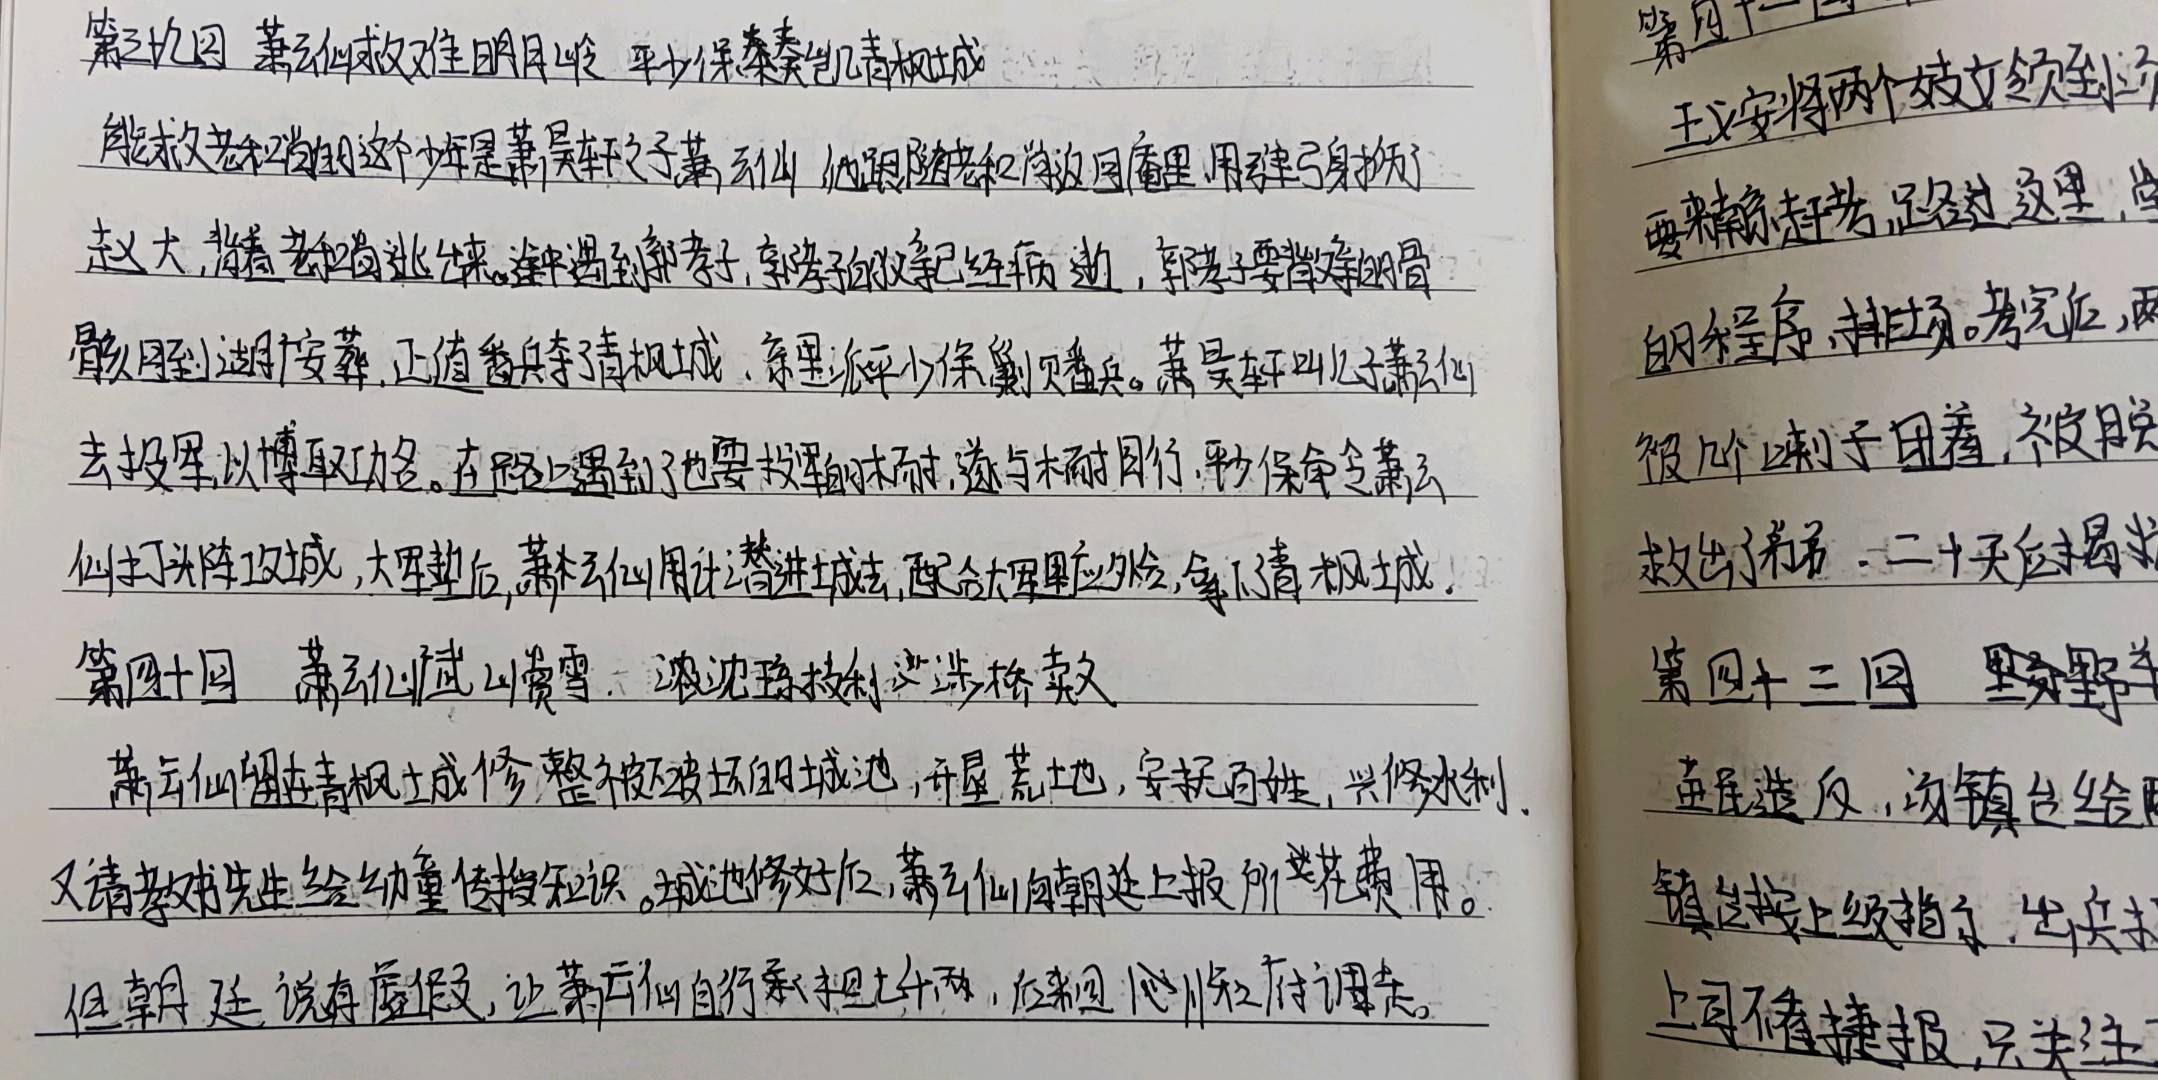 第三十九回 萧云仙救难明月岭 平少保奏凯青枫城
能救老和尚的这个少年是萧昊轩之子萧云仙 他跟随老和尚返回庵里,用弹弓射伤了
赵大,背着老和尚逃出来。途中遇到郭孝子,郭孝子的父亲已经病逝,郭孝子要背父亲的骨
骸回到湖广安葬,正值番兵夺了青枫城,京里派平少保剿灭番兵。萧昊轩叫儿子萧云仙
去投军,以博取功名。在路上遇到了也要投军的木耐,遂与木耐同行,平少保命令萧云
仙打头阵攻城,大军垫后,萧云仙用计潜进城去,配合大军里应外合,拿下了青枫城.
第四十回 萧云仙广武山赏雪. 沈琼枝利涉桥卖文
萧云仙留在青枫城修整被破坏的城池,开垦荒土地,安抚百姓,兴修水利.
又请教书先生给幼童传授知识。城池修好后,萧云仙向朝廷上报所花费用。
但朝廷说有虚假,让萧云仙自行承担七千两,后来回
第四十一回
王义安将两个妓女领到
要来南京赶考,路过这里,
的程序,排场。考完后,两
被几个喇子围着,被脱
救出了弟弟.二十天后揭
第四十三回 野羊
苗民造反,汤镇台给
镇台按上级指示,出兵
上司不看捷报,只关注